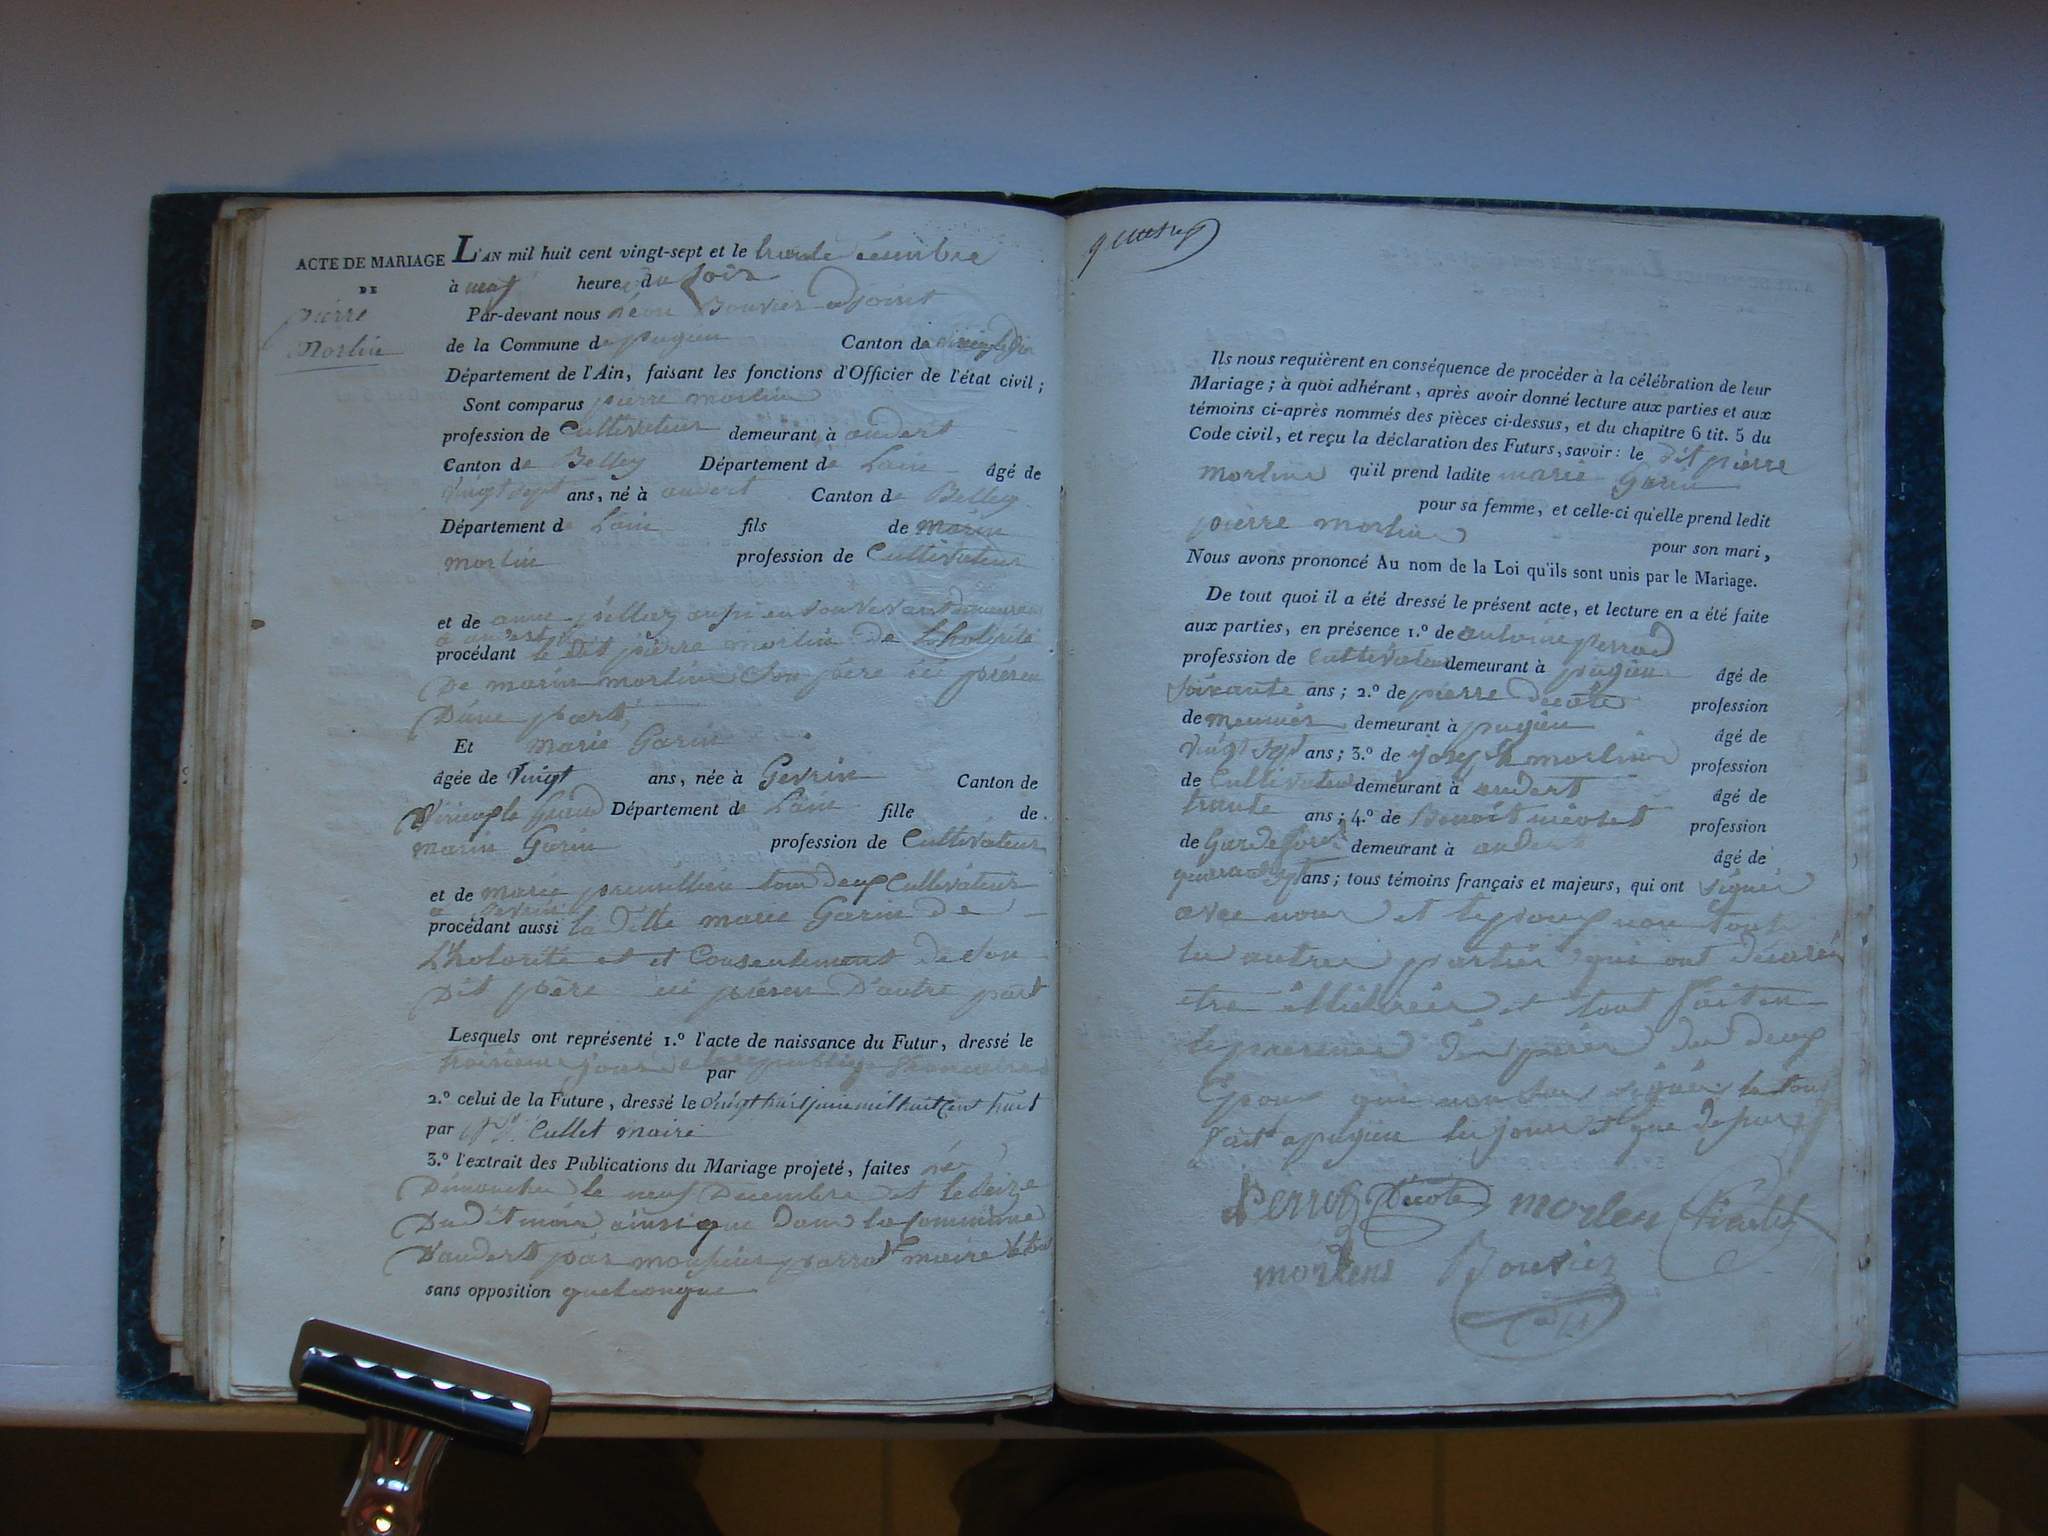 ACTE DE MARIAGE L'AN mil huit cent vingt-sept et le trante désembre
DE à neuf heure du soir
pierre Par-devant nous Bouvier adjoint
Morlin de la Commune de pugieu Canton de
Département de l'Ain, faisant les fonctions d'Officier de l'état civil ;
Sont comparus pierre morlin
profession de Cultivateur demeurant à andert
Canton de Belley Département de Lain âgé de
vingt sept ans, né à andert Canton de Belley
Département de Lain fils de marin
morlin profession de Cultivateur
et de anne
à andert
procédant le dit pierre morlin de Lhotorité
De marin morlin Son père ici présen
Dune part
Et marie Garin
âgée de Vingt ans, née à Gevrin Canton de
Virieu le Grand Département de Lain fille de
marin Garin profession de Cultivateur
et de marie tous deux Cultivateur
a Gevrin
procédant aussi la ditte marie Garin de
L'hotorité et et Consentement de Son
Dit père ici présen D'autre part
Lesquels ont représenté 1.º l'acte de naissance du Futur, dressé le
par
2.º celui de la Future, dressé le vingt huit juin mil huit Cent huit
par Cullet maire
3.º l'extrait des Publications du Mariage projeté, faites
Dimanche le neuf Décembre et le seize
Dudit mois ainsi que dans la Commune
D'andert par monsieur maire
sans opposition quelconque
Ils nous requièrent en conséquence de procéder à la célébration de leur
Mariage ; à quoi adhérant, après avoir donné lecture aux parties et aux
témoins ci-après nommés des pièces ci-dessus, et du chapitre 6 tit. 5 du
Code civil, et reçu la déclaration des Futurs, savoir : le dit pierre
morlin qu'il prend ladite marie Garin
pour sa femme, et celle-ci qu'elle prend ledit
pierre morlin pour son mari,
Nous avons prononcé Au nom de la Loi qu'ils sont unis par le Mariage.
De tout quoi il a été dressé le présent acte, et lecture en a été faite
aux parties, en présence 1.º de antoine perrod
profession de Cultivateur demeurant à pugieu âgé de
soixante ans ; 2.º de pierre decote profession
de meunier demeurant à pugieu âgé de
vingt sept ans ; 3.º de joseph morlin profession
de Cultivateur demeurant à andert âgé de
trante ans ; 4.º de Benoit nicolet profession
de Garde forest demeurant à andert âgé de
ans ; tous témoins français et majeurs, qui ont signé
avec nous et lepoux non tout
les autres parties qui ont déclaré
etre et tout fait en
le presence des père des deux
Epoux qui non Su signé le tout
fait a pugieu les jour et que desus
Decote morlin Nicolet
morlin Bouvier